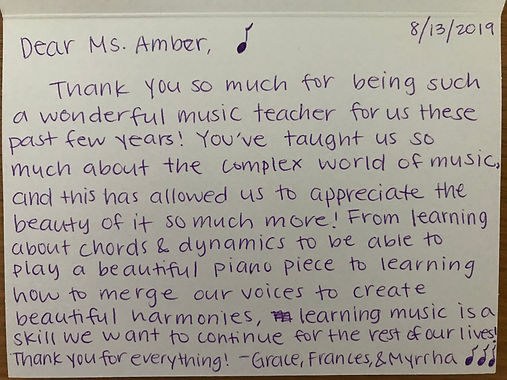 8/13/2019
Dear Ms. Amber,
Thank you so much for being such
a wonderful music teacher for us these
past few years! You've taught us so
much about the complex world of music,
and this has allowed us to appreciate the
beauty of it so much more! From learning
about chords & dynamics to be able to
play a beautiful piano piece to learning
how to merge our voices to create
beautiful harmonies, learning music is a
skill we want to continue for the rest of our lives!
Thank you for everything! -Grace, Frances, & Myrrha